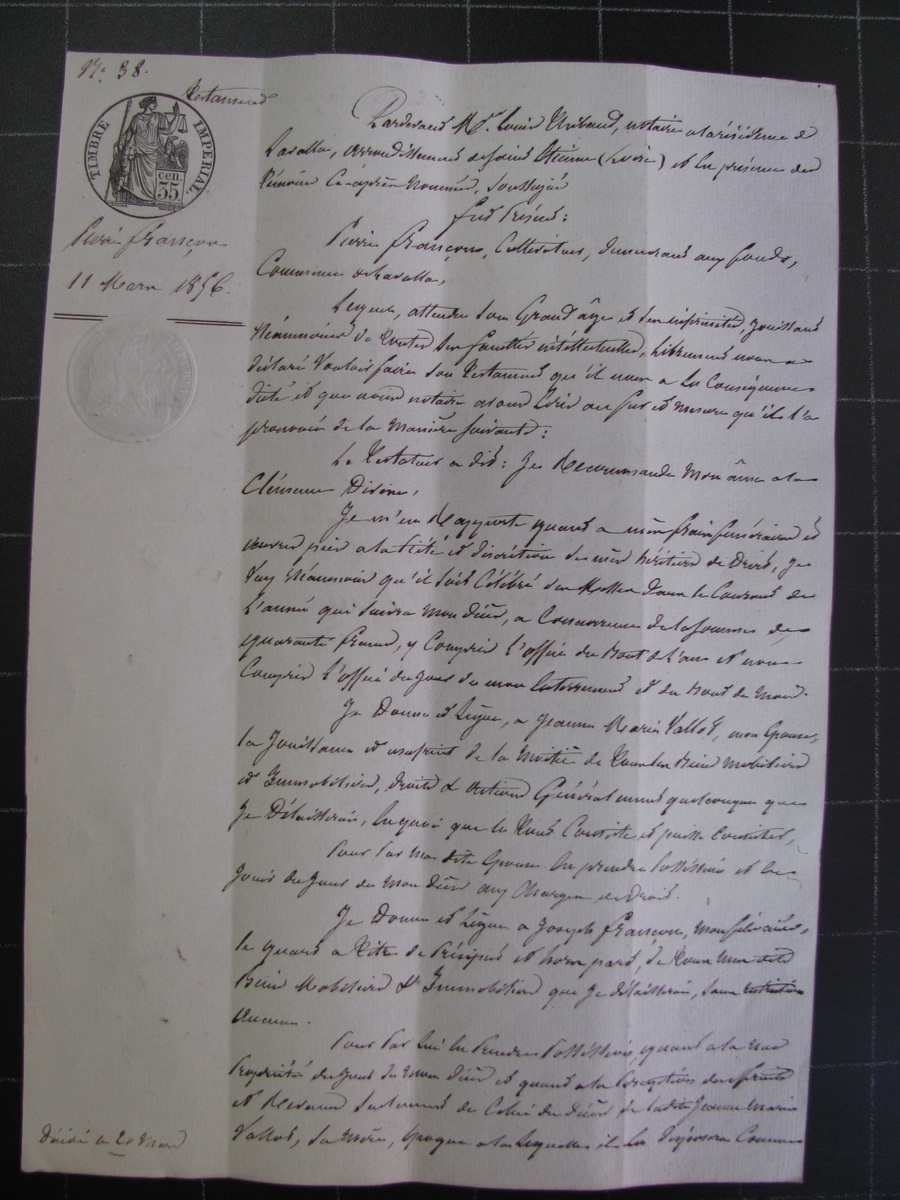 N° 38.
Testament
TIMBRE IMPERIAL
35 cen.
Pierre françon
11 Mars 1856.
Pardevant Me. Louis notaire a la résidence de
Lavalla, arrondissement de Saint Etienne (Loire) et en présence des
témoins Ci-après Nommés, Soussignés
fut Présent:
Pierre françon, Cultivateur, demeurant aux fonds,
Commune de Lavalla,
Lequel, attendu son Grand âge et ses infirmités, jouissant
Néanmoins de toutes ses facultés intellectuelles, librement nous a
déclaré Vouloir faire son Testament qu'il nous a en Conséquence
dicté et que nous notaire avons écrit au fur et mesure qu'il l'a
prononcé de la Manière Suivante:
Le Testateur a dit: Je Recommande Mon âme a la
Clémence Divine,
Je m'en Rapporte quant a mes frais funéraires et
œuvres pies a la Piété et discrétion de mes héritiers de Droit, je
Veux Néanmoins qu'il soit Célébré des Messes dans le Courant de
L'année qui suivra mon décès, a Concurrence de la somme de
quarante francs, y Compris L'office du Bout de l'an et non
Compris L'office du jour de mon enterrement et du bout de mois.
Je Donne et Lègue, a Jeanne Marie Vallot, mon épouse,
la Jouissance et usufruit de la moitié de tous les Biens mobiliers
et Immobiliers, droits & actions Généralement quelconques que
Je Délaisserai, en quoi que le tout Consiste et puisse Consister,
Pour par ma dite épouse en prendre possession et en
Jouir du jour de mon décès aux Charges de Droit.
Je Donne et Lègue a Joseph françon, mon fils
le quart a titre de Préciput et hors part, de tous mes dits
Biens Mobiliers & Immobiliers que je délaisserai, sans
aucune.
Pour par lui en prendre possession, quant a la nue
Propriété du jour de mon décès et quant a la perception des fruits
et Revenus seulement de Celui du décès de ladite Jeanne Marie
Vallot, sa Mère, époque a laquelle il en disposera Comme
20 Mars